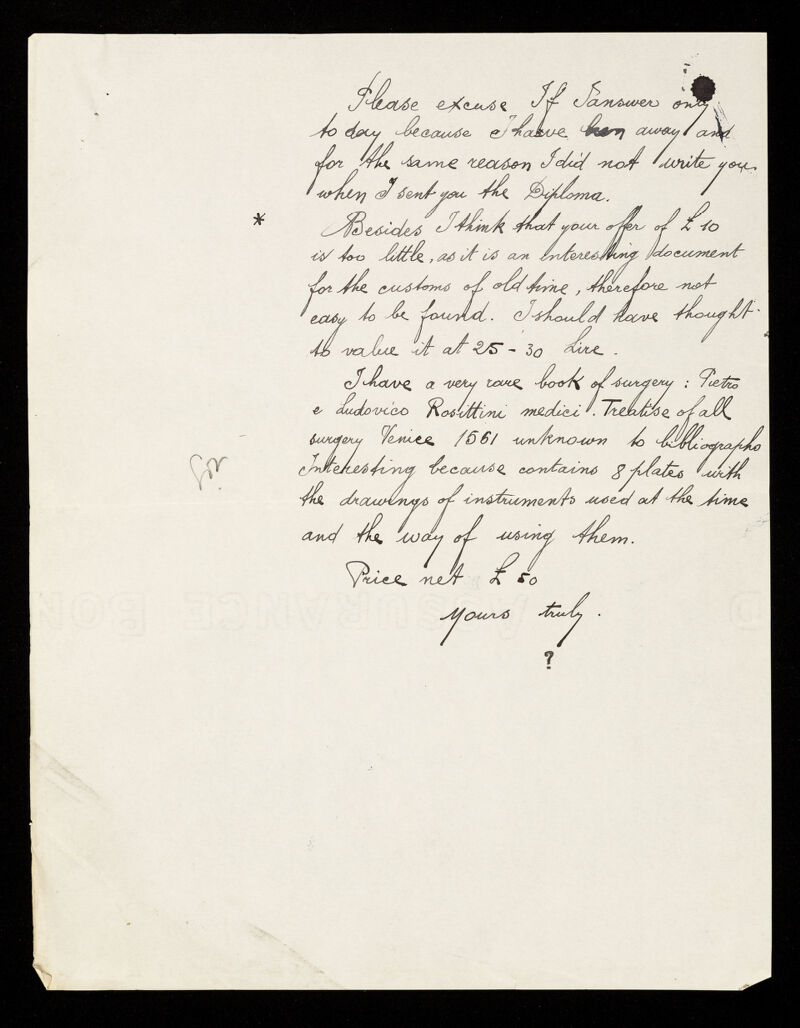 Please excuse If I answer only
to day because I haeve been away and
for the same reason I did not write you
when I sent you the Diploma.
* Besides I think that your offer of £ 10
is too little, as it is an interesting document
for the customs of old time, therefore not
easy to be found. I should have thought
to value it at 25 - 30 Lire.
I have a very rare book of surgery: Pietro
e Ludovico Rosittini medici. Treatise of all
surgery Venice 1561 unknown to bibliographo
Interesting because contains 8 plates with
the drawings of instruments used at the time
and the way of using them.
Price net £ 50
Yours truly.
?
ASSURANCE BON